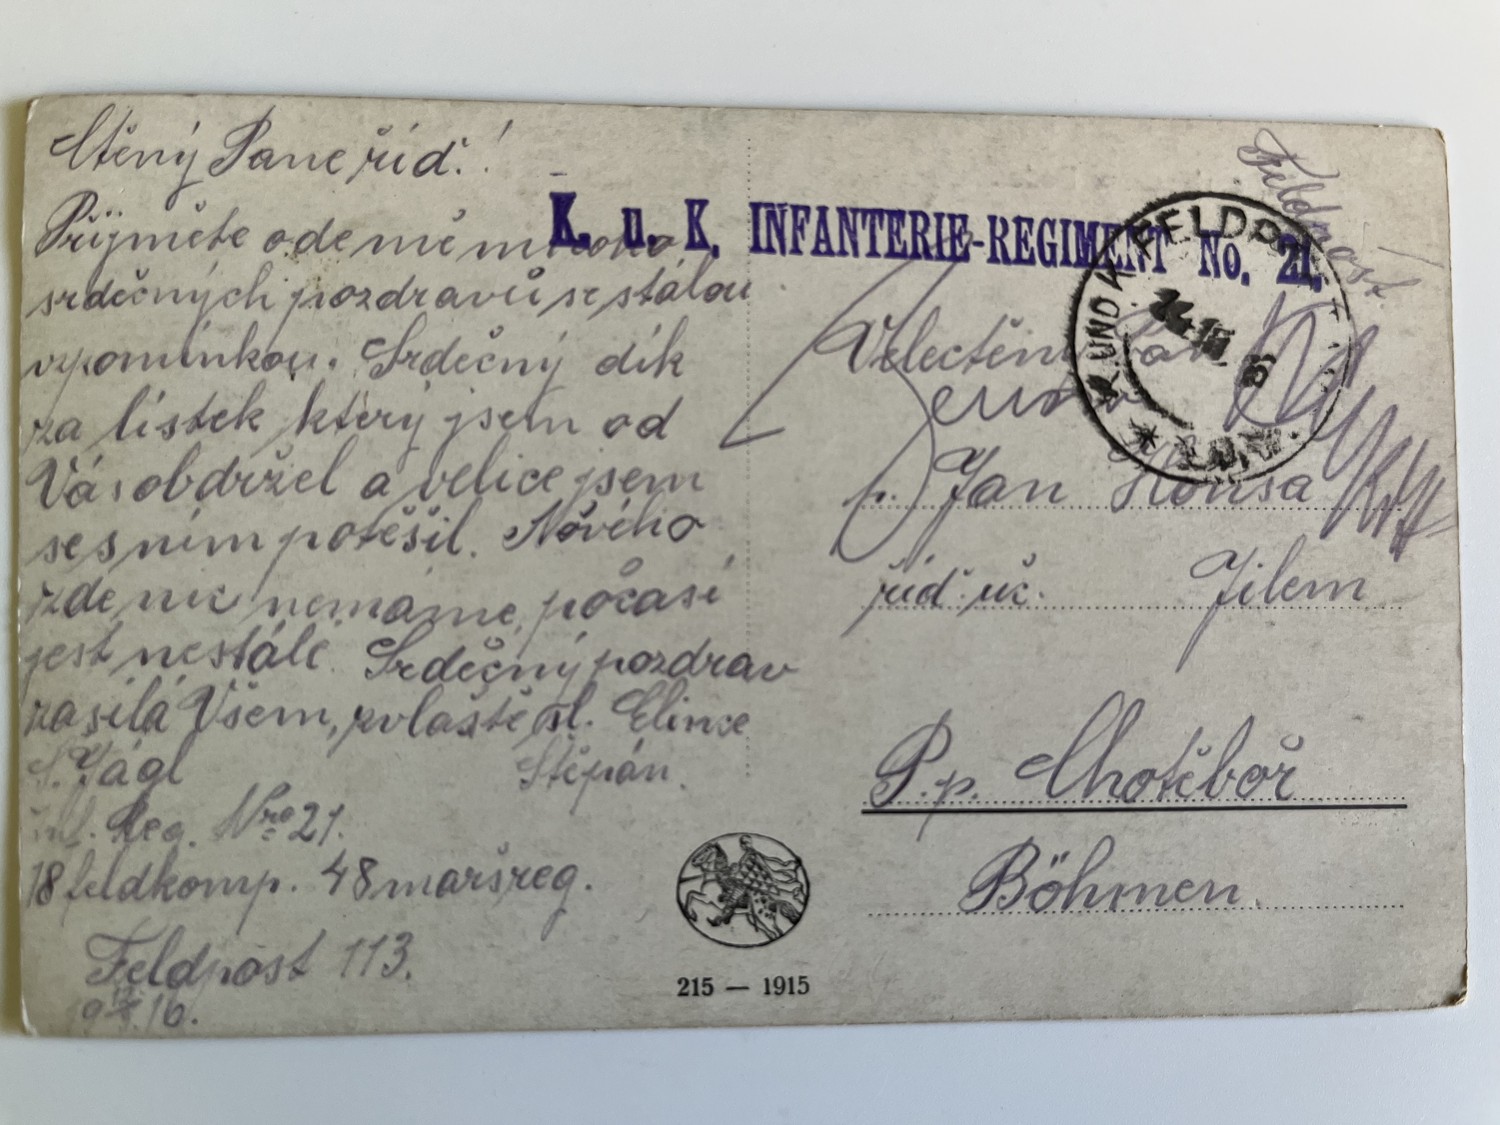 Ctěný Pane říď.!
Přijměte ode mě mnoho
srdečných pozdravů se stálou
vzpomínkou. Srdečný dík
za lístek který jsem od
Vás obdržel a velice jsem
se s ním potěšil. Nového
zde nic nemáme, počasí
jest nestálé. Srdečný pozdrav
zasílá Všem, zvláště sl. Elince
Jágl Štěpán.
Inf. Reg. Nro 21.
18 feldkomp. 48 maršreg.
Feldpost 113.
16.
K. u. K. INFANTERIE-REGIMENT No. 21.
Feldpost.
K. UND K. FELDPOST
Velectěný Pan
p. Jan Honsa
říď. uč. Jilem
P. p. Chotěboř
Böhmen.
215 — 1915